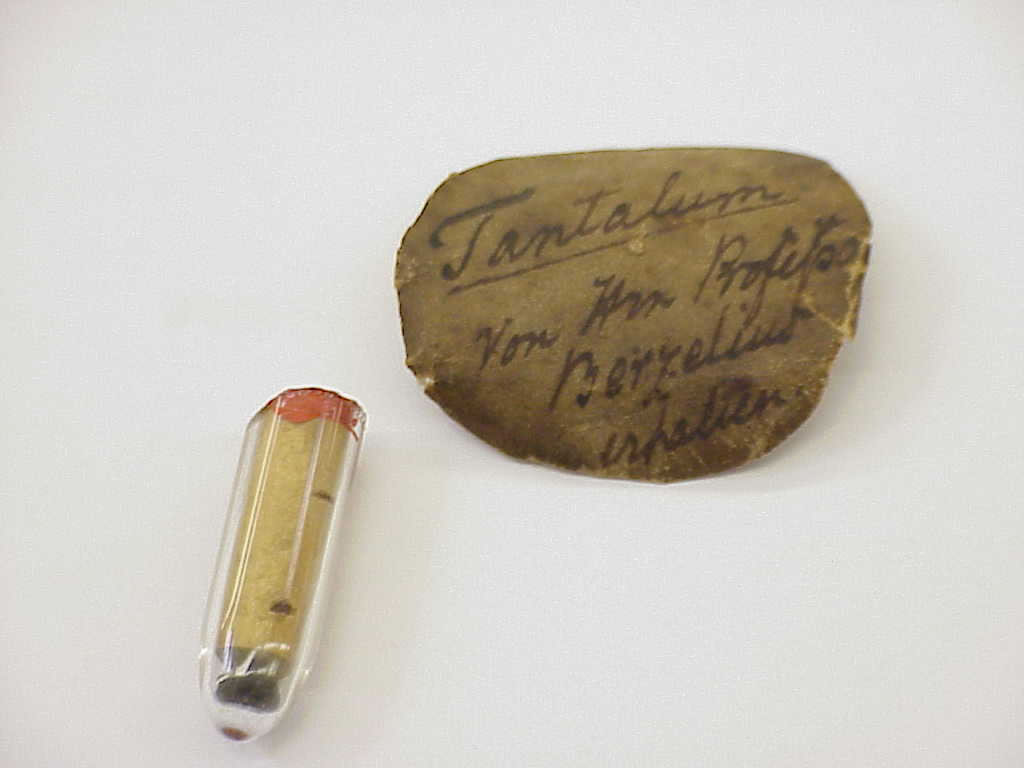 Tantalum
Von Hrn Professor
Berzelius
erhalten.